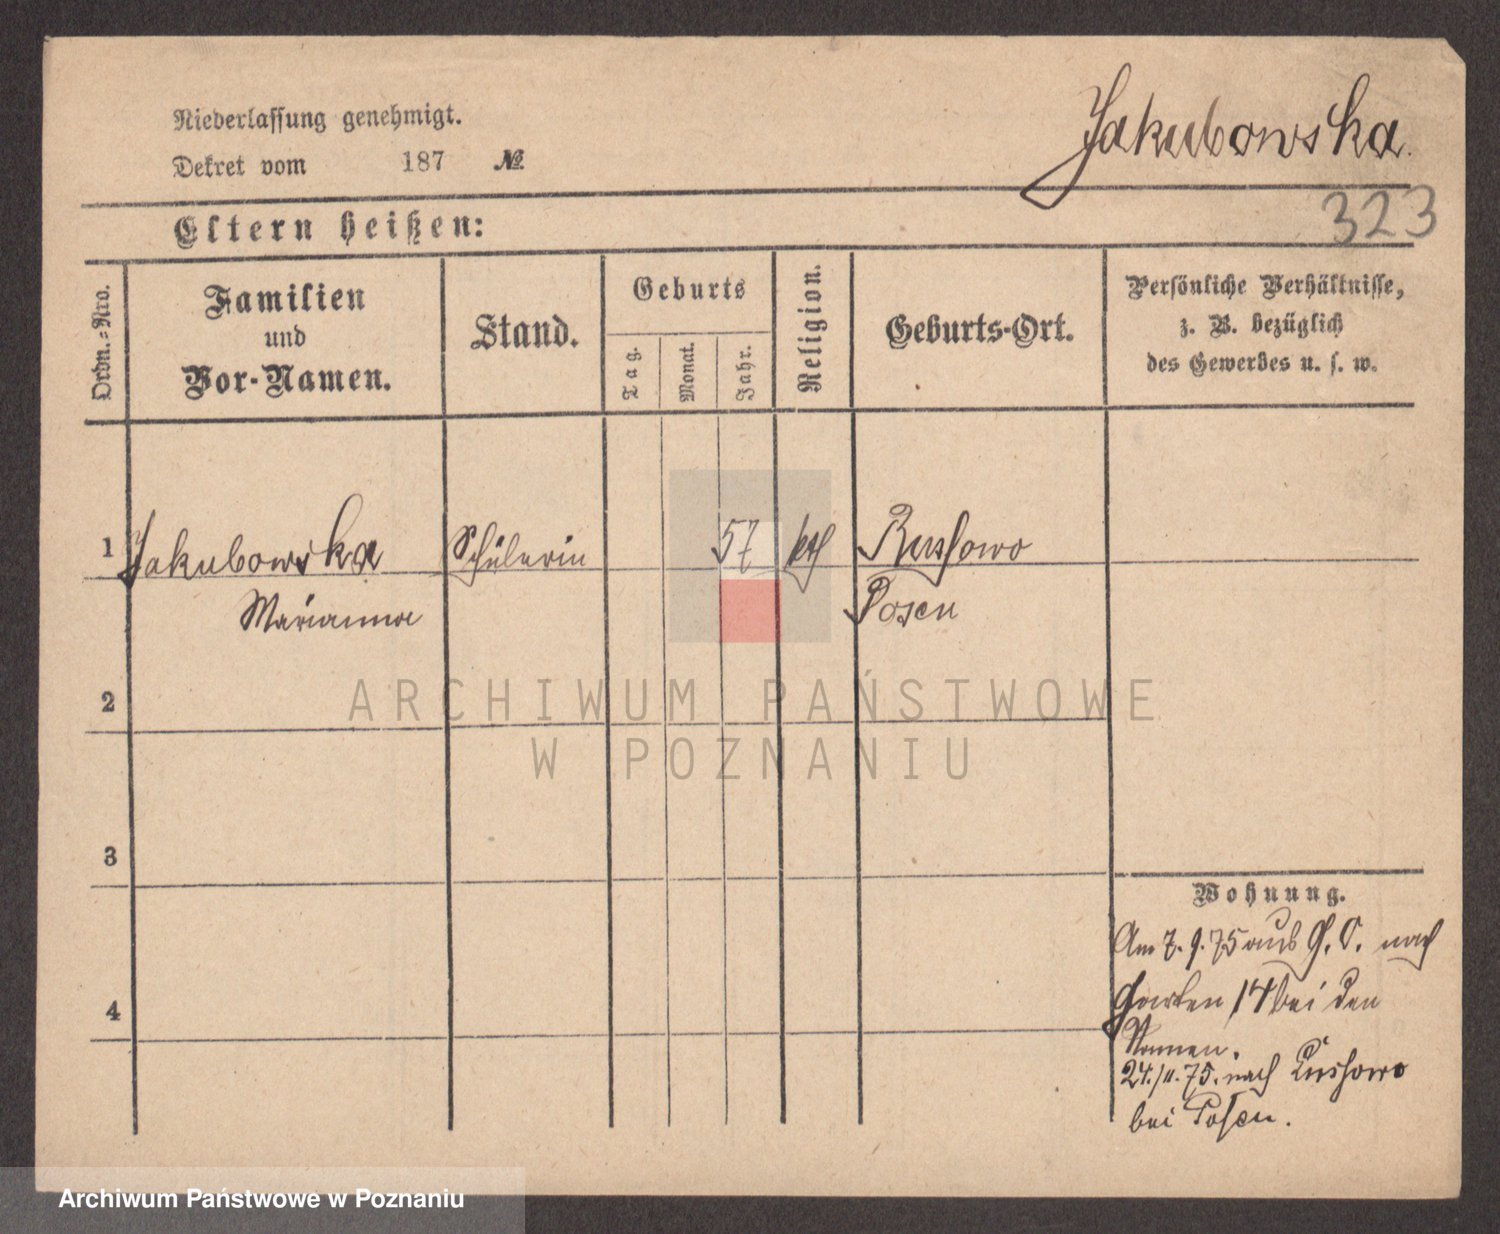 Niederlassung genehmigt.
Jakubowska.
Dekret vom 187 №
323
Eltern heißen:
Ordn.-Nro.
Familien
und
Vor-Namen.
Stand.
Geburts
Tag.
Monat.
Jahr.
Religion.
Geburts-Ort.
Persönliche Verhältnisse,
z. B. bezüglich
des Gewerbes u. s. w.
1 Jakubowska Schülerin 57 kth
Marianna Posen
2
ARCHIWUM PAŃSTWOWE
W POZNANIU
3
Wohnung.
Am 7. 9. 75 aus G. S. nach
Garten 14 bei den
4
Nonnen.
24./11. 75. nach
bei Posen.
Archiwum Państwowe w Poznaniu